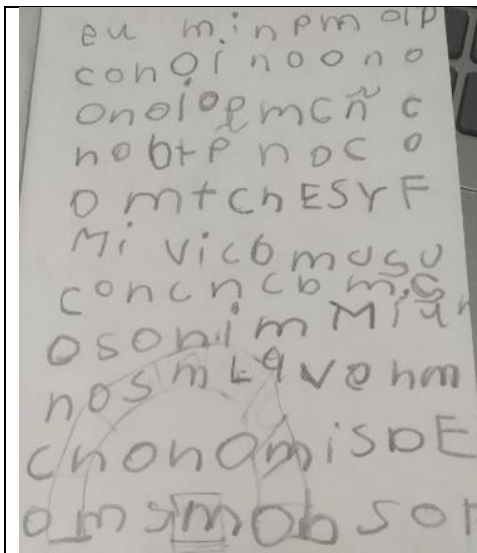 eu minpm olp
conoinoono
onolopmcñ c
nobtp noc o
o mtchESYF
Mi vicomuso
concncb m.s
osonim Miu
nosmLavehm
chonomisDE
omsmobsor